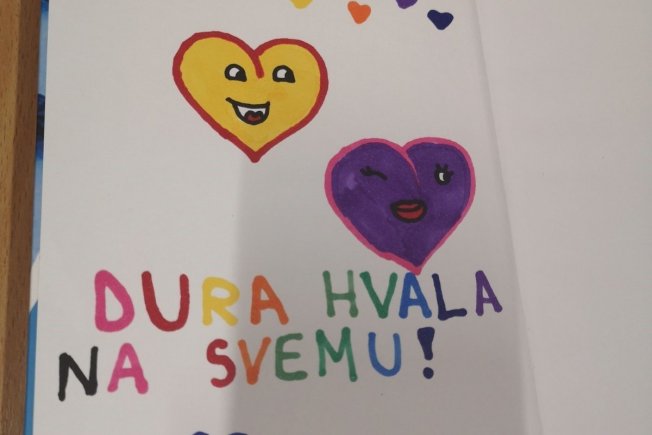 DURA HVALA
NA SVEMU!